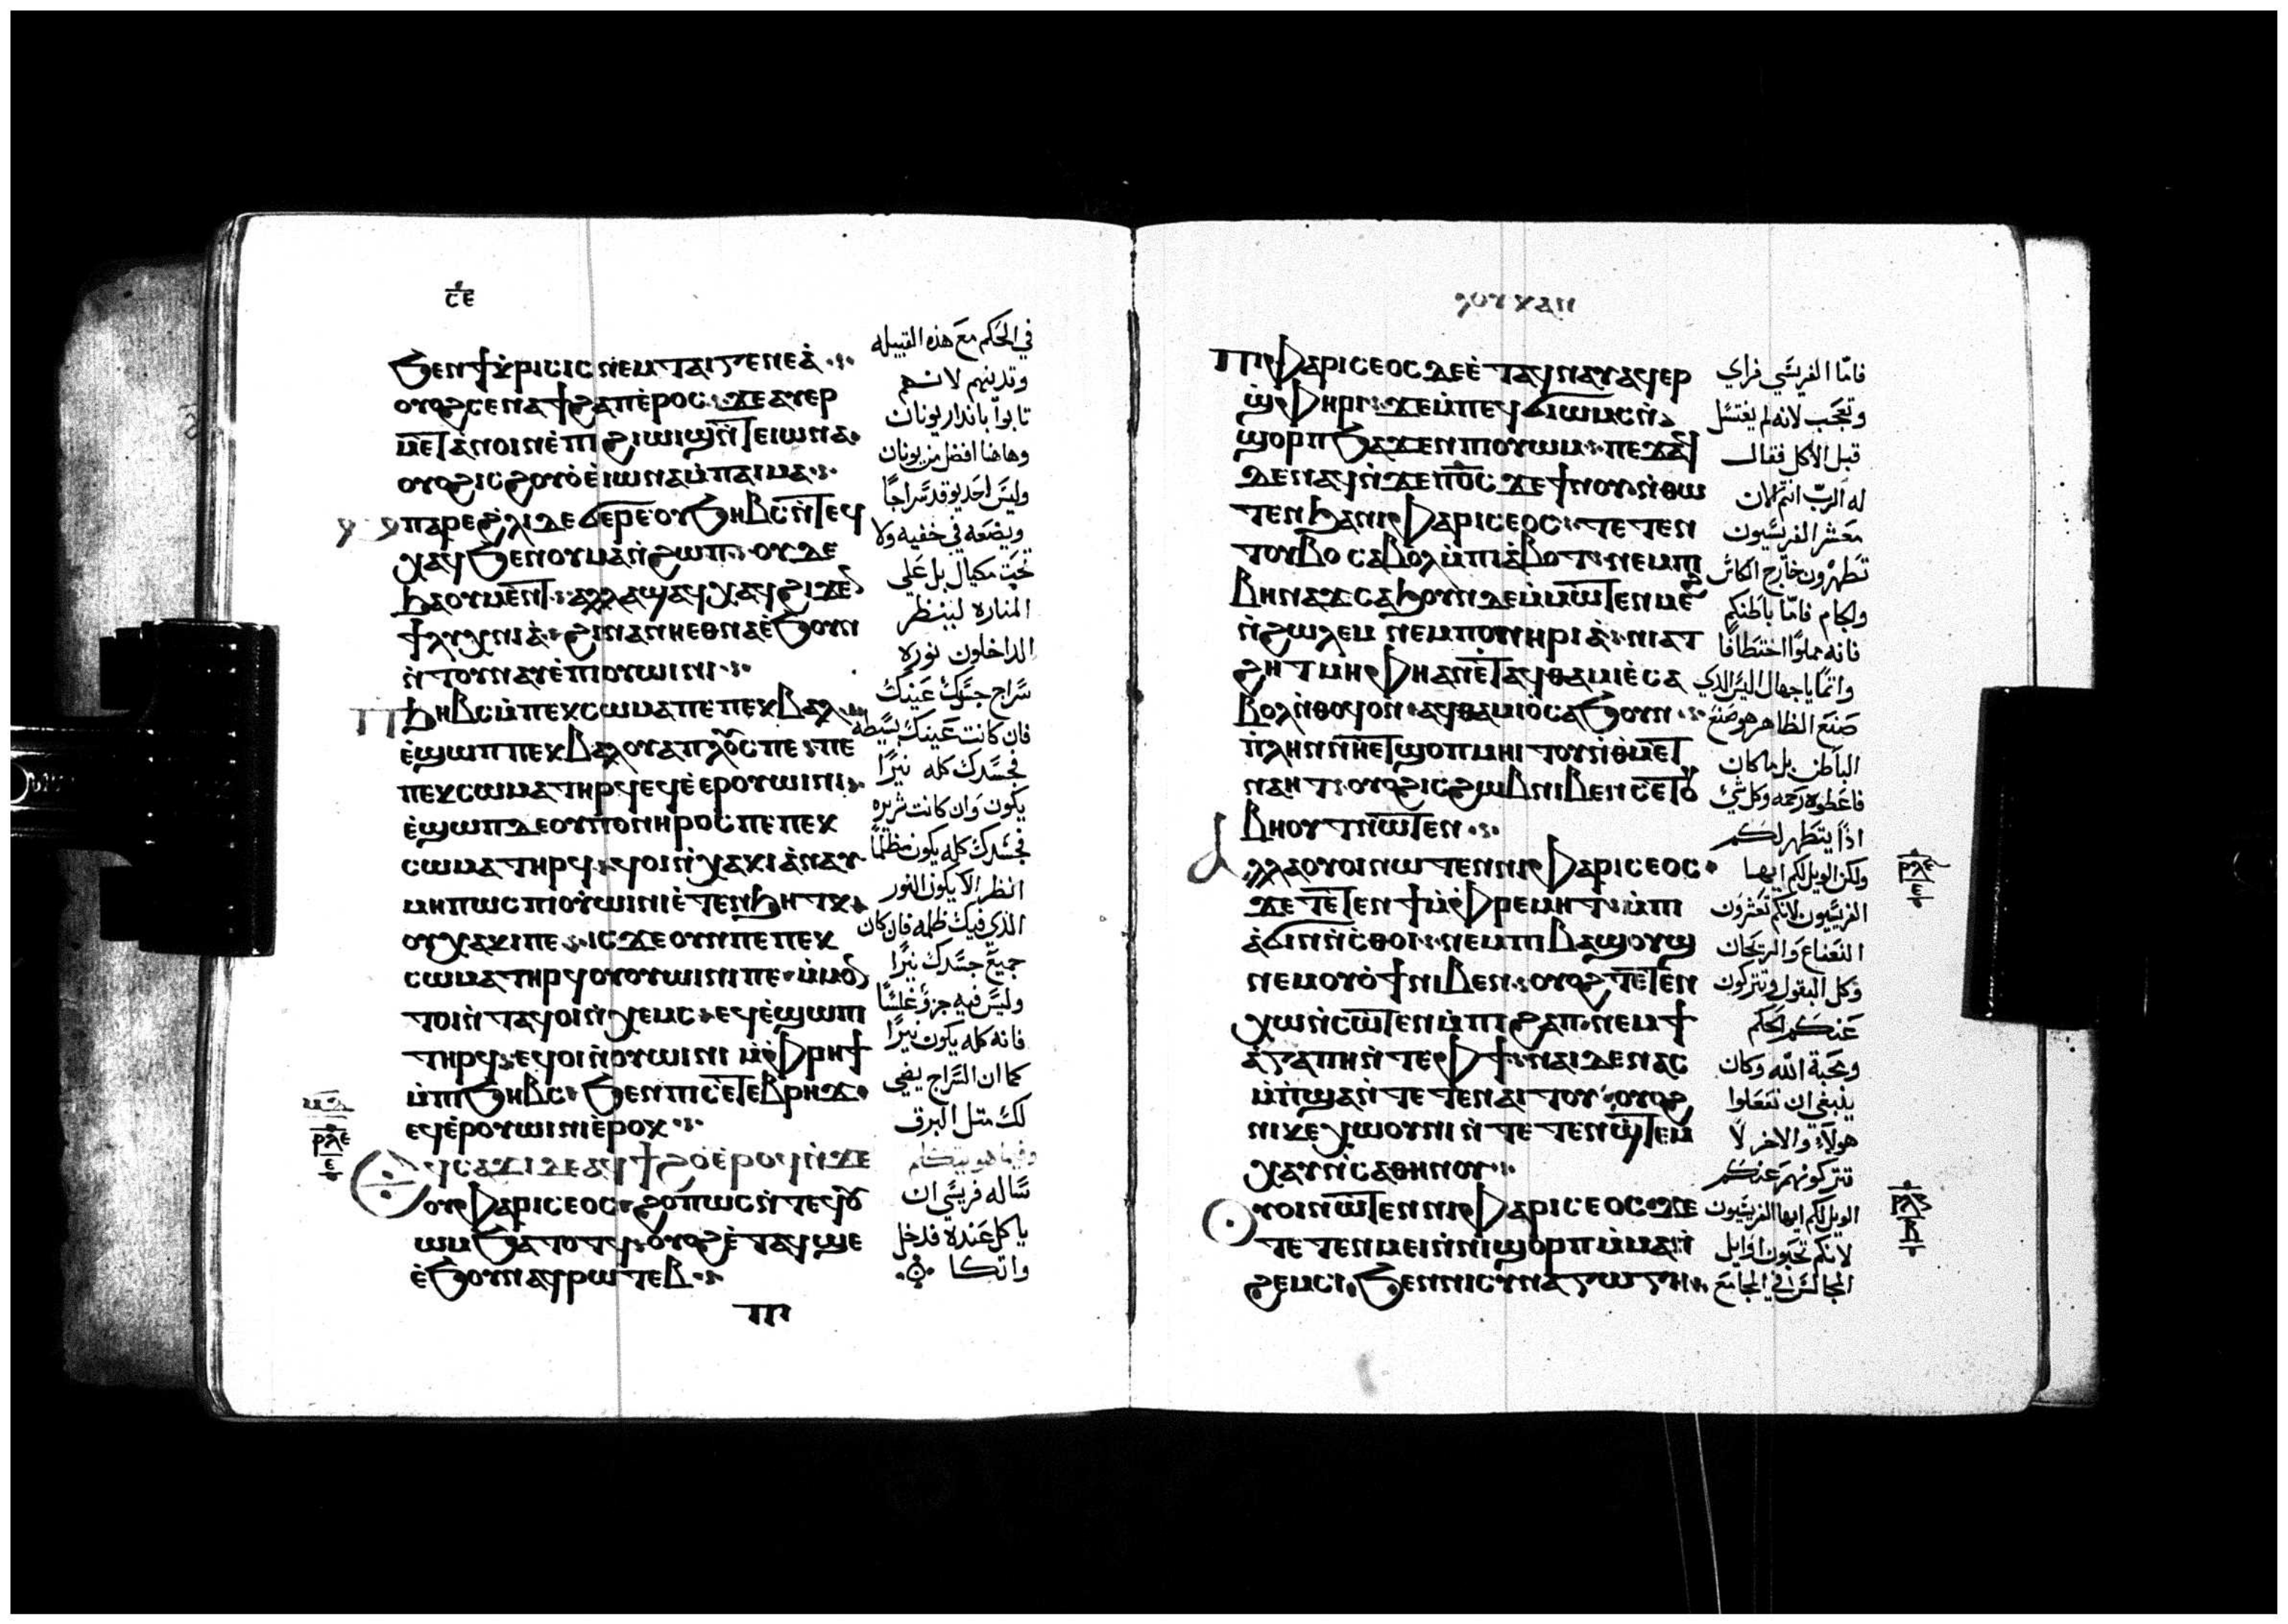 ⲥⲉ
ϧⲉⲛϯⲕⲣⲓⲥⲓⲥ ⲛⲉⲙ ⲧⲁⲓⲅⲉⲛⲉⲁ
ⲟⲩⲟϩ ⲥⲉⲛⲁϯϩⲁⲡ ⲉⲣⲟⲥ ϫⲉ ⲁⲩⲉⲣ
ⲙⲉⲧⲁⲛⲟⲓⲛ ⲉⲡⲓϩⲓⲱⲓϣ ⲛⲧⲉ ⲓⲱⲛⲁ
ⲟⲩⲟϩ ⲓⲥ ϩⲟⲩⲟ ⲉⲓⲱⲛⲁ ⲙⲡⲁⲓⲙⲁ
ⲙⲡⲁⲣⲉ ϩⲗⲓ ⲇⲉ ϭⲉⲣⲉ ⲟⲩϧⲏⲃⲥ ⲛⲧⲉϥ
ⲭⲁϥ ϧⲉⲛ ⲟⲩⲙⲁ ⲛϩⲱⲡ ⲟⲩⲇⲉ
ϧⲁ ⲟⲩⲙⲉⲛⲧ ⲁⲗⲗⲁ ϣⲁϥⲭⲁϥ ϩⲓϫⲉⲛ
ϯⲗⲩⲭⲛⲓⲁ ϩⲓⲛⲁ ⲛⲏⲉⲑⲛⲁ ⲉϧⲟⲩⲛ
ⲛⲧⲟⲩⲛⲁⲩ ⲉⲡⲓⲟⲩⲱⲓⲛⲓ
ⲡϧⲏⲃⲥ ⲙⲡⲉⲕⲥⲱⲙⲁ ⲡⲉ ⲡⲉⲕⲃⲁⲗ
ⲉϣⲱⲡ ⲡⲉⲕⲃⲁⲗ ⲟⲩⲁⲡⲗⲟⲩⲥ ⲡⲉ ⲡⲉ
ⲡⲉⲕⲥⲱⲙⲁ ⲧⲏⲣϥ ⲉϥⲉⲉⲣⲟⲩⲱⲓⲛⲓ
ⲉϣⲱⲡ ⲇⲉ ⲟⲩⲡⲟⲛⲏⲣⲟⲥ ⲡⲉ ⲡⲉⲕ
ⲥⲱⲙⲁ ⲧⲏⲣϥ ϥⲟⲓ ⲛⲭⲁⲕⲓ ⲁⲛⲁⲩ
ⲙⲏⲡⲱⲥ ⲡⲓⲟⲩⲱⲓⲛⲓ ⲉⲧⲉⲛϧⲏⲧⲕ
ⲟⲩⲭⲁⲕⲓ ⲡⲉ ⲓⲥϫⲉ ⲟⲩⲛ ⲡⲉ ⲡⲉⲕ
ⲥⲱⲙⲁ ⲧⲏⲣϥ ⲟⲩⲟⲩⲱⲓⲛⲓ ⲡⲉ ⲙⲙⲟⲛ
ⲧⲟⲓ ⲛⲧⲁϥ ⲟⲓ ⲛⲭⲉⲙⲥ ⲉϥⲉϣⲱⲡⲓ
ⲧⲏⲣϥ ⲉϥⲟⲓ ⲛⲟⲩⲱⲓⲛⲓ ⲙⲫⲣⲏϯ
ⲙⲡⲓϧⲏⲃⲥ ϧⲉⲛ ⲡⲓⲥⲉⲧⲉⲃⲣⲏϫ
ⲉϥⲉⲣⲟⲩⲱⲓⲛⲓ ⲉⲣⲟⲕ
ⲣⲗⲉ
ⲉ
ⲉϥⲥⲁϫⲓ ⲇⲉ ⲁϥϯϩⲟ ⲉⲣⲟϥ ⲛϫⲉ
ⲟⲩⲫⲁⲣⲓⲥⲉⲟⲥ ϩⲟⲡⲱⲥ ⲛⲧⲉϥⲟⲩ
ⲱⲙ ϧⲁⲧⲟⲧϥ ⲟⲩⲟϩ ⲉⲧⲁϥϣⲉ
ⲉϧⲟⲩⲛ ⲁϥⲣⲱⲧⲉⲃ
ⲡⲓ
في الحكم مع هذه القبيله
وتدينهم لانهم
تابوا بانذار يونان
وهاهنا افضل من يونان
وليس احد يوقد سراجا
ويضعه في خفيه ولا
تحت مكيال بل على
المناره لينظر
الداخلون نوره
سراج جسدك عينك
فان كانت عينك بسيطه
فجسدك كله نيرا
يكون وان كانت شريره
فجسدك كله يكون مظلما
انظر الا يكون النور
الذي فيك ظلمه فان كان
جميع جسدك نيرا
وليس فيه جزو غلسا
فانه كله يكون نيرا
كما ان السراج يضي
لك متل البرق
وفيما هو يتكلم
ساله فريسي ان
ياكل عنده فدخل
واتكا
ⲗⲟⲩⲕⲁⲛ
ⲡⲓⲫⲁⲣⲓⲥⲉⲟⲥ ⲇⲉ ⲉⲧⲁϥⲛⲁⲩ ⲁϥⲉⲣ
ϣⲫⲏⲣⲓ ϫⲉ ⲙⲡⲉϥϭⲓⲱⲙⲥ ⲛ
ϣⲟⲣⲡ ϧⲁϫⲉⲛ ⲡⲓⲟⲩⲱⲙ ⲡⲉϫⲁϥ
ⲇⲉ ⲛⲁϥ ⲛϫⲉ ⲡⲟⲥ ϫⲉ ϯⲛⲟⲩ ⲛⲑⲱ
ⲧⲉⲛ ϧⲁ ⲛⲓⲫⲁⲣⲓⲥⲉⲟⲥ ⲧⲉⲧⲉⲛ
ⲧⲟⲩⲃⲟ ⲥⲁⲃⲟⲗ ⲙⲡⲓⲁⲫⲟⲧ ⲛⲉⲙ ⲡⲓ
ⲃⲓⲛⲁϫ ⲥⲁϧⲟⲩⲛ ⲇⲉ ⲙⲙⲱⲧⲉⲛ ⲙⲉϩ
ⲛϩⲱⲗⲉⲙ ⲛⲉⲙ ⲡⲟⲛⲏⲣⲓⲁ ⲛⲓⲁⲧ
ϩⲏⲧ ⲙⲏ ⲫⲏ ⲁⲛ ⲉⲧⲁϥⲑⲁⲙⲓⲉ ⲥⲁ
ⲃⲟⲗ ⲛⲑⲟϥ ⲟⲛ ⲁϥⲑⲁⲙⲓⲟ ⲥⲁϧⲟⲩⲛ
ⲡⲗⲏⲛ ⲛⲏⲉⲧϣⲟⲡ ⲙⲏⲓⲧⲟⲩ ⲛⲑⲙⲉⲧ
ⲛⲁⲏⲧ ⲟⲩⲟϩ ⲓⲥ ϩⲱⲃ ⲛⲓⲃⲉⲛ ⲥⲉⲧⲟⲩ
ⲃⲏⲟⲩⲧ ⲛⲱⲧⲉⲛ
ⲁⲗⲗⲁ ⲟⲩⲟⲓ ⲛⲱⲧⲉⲛ ⲛⲓⲫⲁⲣⲓⲥⲉⲟⲥ
ϫⲉ ⲧⲉⲧⲉⲛϯ ⲙⲫⲣⲉⲙⲏⲧ ⲙⲡⲓ
ⲁϭⲓⲛⲛⲥⲑⲟⲓ ⲛⲉⲙ ⲡⲓⲃⲁϣⲟⲩϣ
ⲛⲉⲙ ⲟⲩⲟϯ ⲛⲓⲃⲉⲛ ⲟⲩⲟϩ ⲧⲉⲧⲉⲛ
ⲭⲱ ⲛⲥⲱⲧⲉⲛ ⲙⲡⲓϩⲁⲡ ⲛⲉⲙ ϯ
ⲁⲅⲁⲡⲏ ⲛⲧⲉ ⲫϯ ⲛⲁⲓ ⲇⲉ ⲛⲁⲥ
ⲙⲡϣⲁ ⲛⲧⲉⲧⲉⲛⲁⲓⲧⲟⲩ ⲟⲩⲟϩ
ⲛⲓⲕⲉⲭⲱⲟⲩⲛⲓ ⲛⲧⲉⲧⲉⲛϣⲧⲉⲙ
ⲭⲁⲩ ⲛⲥⲁⲑⲏⲛⲟⲩ
ⲟⲩⲟⲓ ⲛⲱⲧⲉⲛ ⲛⲓⲫⲁⲣⲓⲥⲉⲟⲥ ϫⲉ
ⲧⲉⲧⲉⲛⲙⲉⲓ ⲛⲛⲓϣⲟⲣⲡ ⲙⲙⲁⲛ
ϩⲉⲙⲥⲓ ϧⲉⲛ ⲛⲓⲥⲩⲛⲁⲅⲱⲅⲏ
فاما الفريسي فراي
وتعجب لانه لم يغتسل
قبل الاكل فقال
له الرب انتم الان
معشر الفريسيون
تطهرون خارج الكاس
والجام فاما باطنكم
فانه مملوا اختطافا
وانما يا جهال اليس الذي
صنع الظاهر هو صنع
الباطن بل ما كان
فاعطوه رحمه وكل شي
اذا يتطهر لكم
ولكن الويل لكم ايها
الفريسيون لانكم تعشرون
النعناع والريحان
وكل البقول وتتركون
عنكم الحكم
ومحبة الله وكان
ينبغي ان تفعلوا
هولاء والاخر لا
تتركونهم عنكم
الويل لكم ايها الفريسيون
لانكم تحبون اوايل
المجالس في المجامع
ⲣⲗⲋ
ⲉ
ⲣⲗⲍ
ⲃ